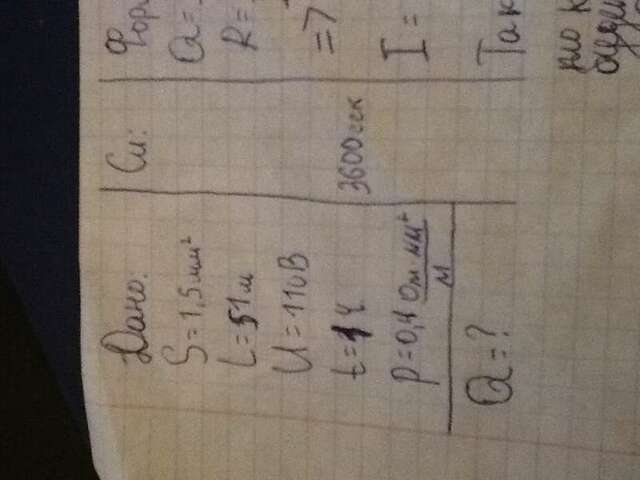 Дано:
S=1,5мм²
L=51м
U=110В
t=1ч
p=0,4 Ом мм²
м
Q=?
Си:
3600сек
Фор
Q=
R=
=>
I=
Так